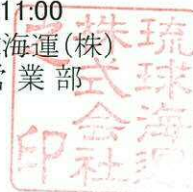 11:00
海運(株)
営業部
琉球海運
株式会社
之印